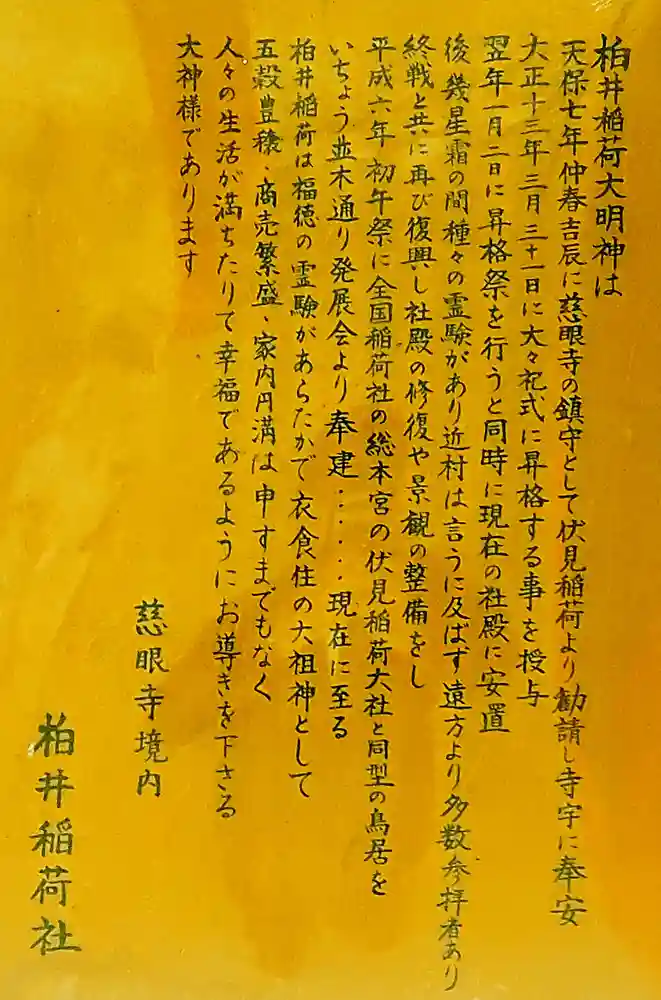 柏井稲荷大明神は
天保七年仲春吉辰に慈眼寺の鎮守として伏見稲荷より勧請し寺宇に奉安
大正十三年三月三十一日に大々祀式に昇格する事を授与
翌年一月二日に昇格祭を行うと同時に現在の社殿に安置
後幾星霜の間種々の霊験があり近村は言うに及ばず遠方より多数参拝者あり
終戦と共に再び復興し社殿の修復や景観の整備をし
平成六年初午祭に全国稲荷社の総本宮の伏見稲荷大社と同型の鳥居を
いちょう並木通り発展会より奉建‥‥‥現在に至る
柏井稲荷は福徳の霊験があらたかで衣食住の大祖神として
五穀豊穣、商売繁盛 家内円満は申すまでもなく
人々の生活が満ちたりて幸福であるようにお導きを下さる
大神様であります
慈眼寺境内
柏井稲荷社